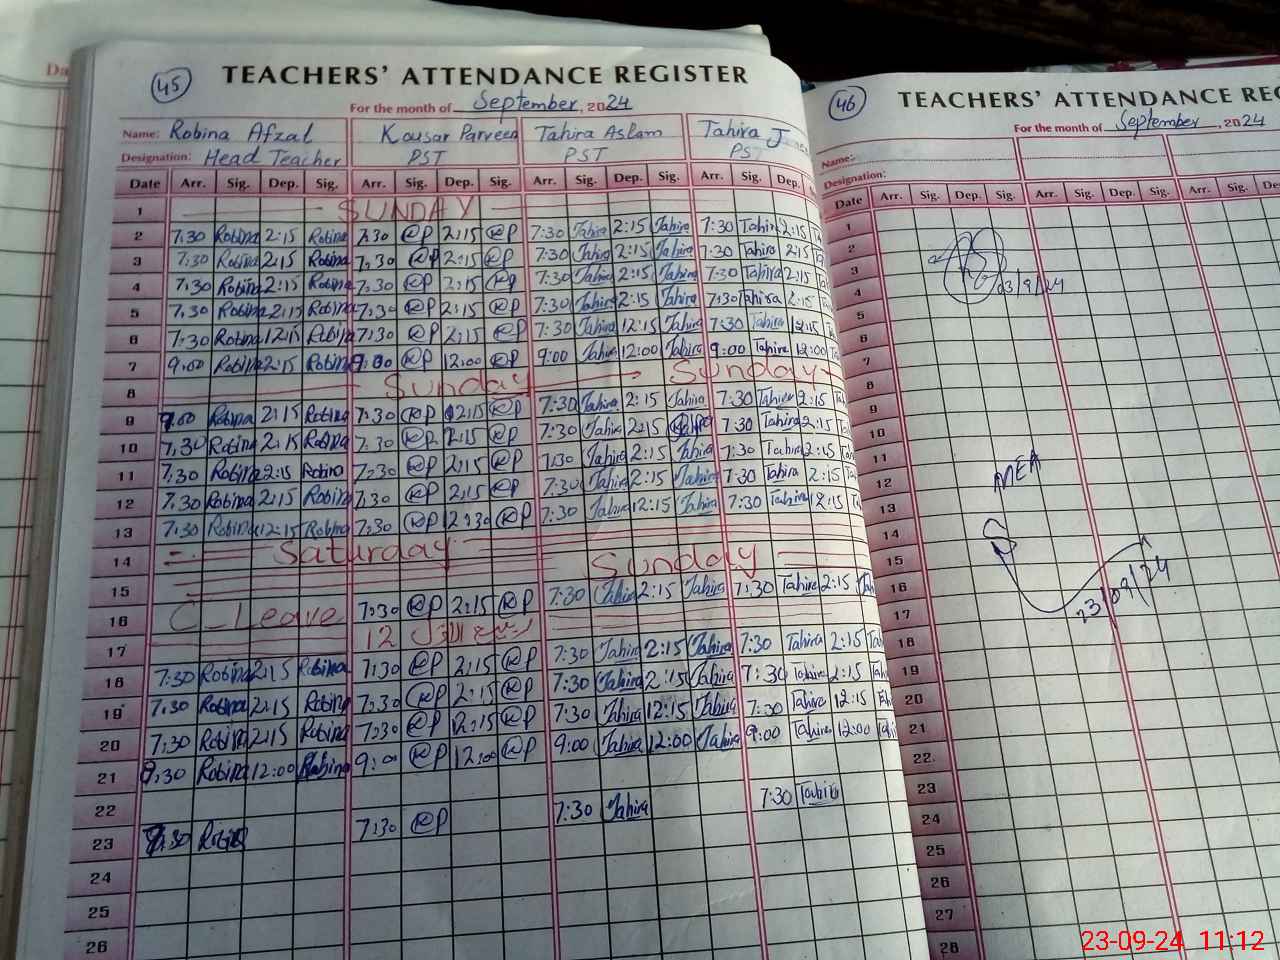 45 TEACHERS' ATTENDANCE REGISTER
For the month of September, 2024
Name: Robina Afzal Kousar Parveen Tahira Aslam Tahira
Designation: Head Teacher PST PST PST
Date Arr. Sig. Dep. Sig. Arr. Sig. Dep. Sig. Arr. Sig. Dep. Sig. Arr. Sig. Dep.
1 SUNDAY
2 7:30 Robina 2:15 Robina 7:30 @P 2:15 @P 7:30 Tahira 2:15 Tahira 7:30 Tahira 2:15
3 7:30 Robina 2:15 Robina 7:30 @P 2:15 @P 7:30 Tahira 2:15 Tahira 7:30 Tahira 2:15
4 7:30 Robina 2:15 Robina 7:30 @P 2:15 @P 7:30 Tahira 2:15 Tahira 7:30 Tahira 2:15
5 7:30 Robina 2:15 Robina 7:30 @P 2:15 @P 7:30 Tahira 2:15 Tahira 7:30 Tahira 2:15
6 7:30 Robina 12:15 Robina 7:30 @P 2:15 @P 7:30 Tahira 12:15 Tahira 7:30 Tahira 12:15
7 9:00 Robina 12:15 Robina 9:00 @P 12:00 @P 9:00 Tahira 12:00 Tahira 9:00 Tahira 12:00
8 Sunday Sunday
9 Robina 2:15 Robina 7:30 @P 2:15 @P 7:30 Tahira 2:15 Tahira 7:30 Tahira 2:15
10 7:30 Robina 2:15 Robina 7:30 @P 2:15 @P 7:30 Tahira 2:15 7:30 Tahira 2:15
11 7:30 Robina 2:15 Robina 7:30 @P 2:15 @P 7:30 Tahira 2:15 Tahira 7:30 Tahira 2:15
12 7:30 Robina 2:15 Robina 7:30 @P 2:15 @P 7:30 Tahira 12:15 Tahira 7:30 Tahira 2:15
13 7:30 Robina 12:15 Robina 7:30 @P 12:30 @P 7:30 Tahira 12:15 Tahira 7:30 Tahira 12:15
14 Saturday
15 Sunday
16 C_Leave 7:30 @P 2:15 @P 7:30 Tahira 2:15 Tahira 7:30 Tahira 2:15
17 12
18 7:30 Robina 2:15 Robina 7:30 @P 2:15 @P 7:30 Tahira 2:15 Tahira 7:30 Tahira 2:15
19 7:30 Robina 2:15 Robina 7:30 @P 2:15 @P 7:30 Tahira 2:15 Tahira 7:30 Tahira 2:15
20 7:30 Robina 2:15 Robina 7:30 @P 12:15 @P 7:30 Tahira 12:15 Tahira 7:30 Tahira 12:15
21 Robina 12:00 Robina 9:00 @P 12:00 @P 9:00 Tahira 12:00 Tahira 9:00 Tahira 12:00
22
23 7:30 @P 7:30 Tahira 7:30 Tahira
24
25
26
46 TEACHERS' ATTENDANCE REG
For the month of September, 2024
Name:
Designation:
Date Arr. Sig. Dep. Sig. Arr. Sig. Dep. Sig. Arr. Sig. De
1
2
3
4 03/9/24
5
6
7
8
9
10
11
12 MEA
13
14
15
16
17 23/09/24
18
19
20
21
22
23
24
25
26
27
28
23-09-24 11:12